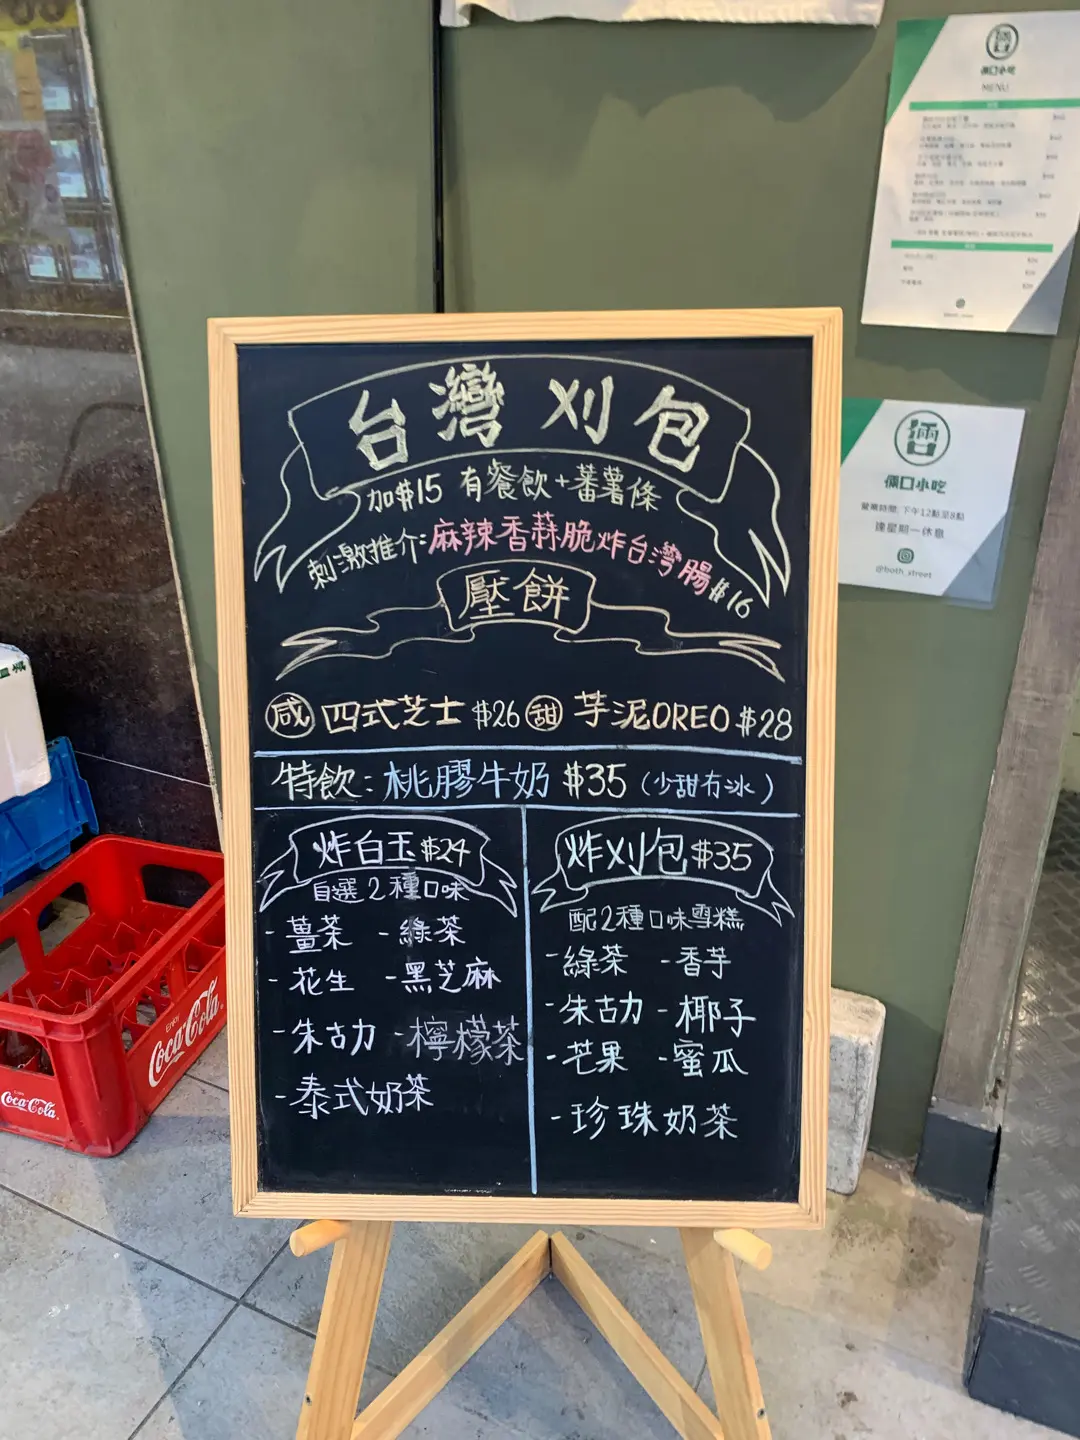 台灣 刈包
加$15 有餐飲+蕃薯條
刺激推介:麻辣香蒜脆炸台灣腸$16
壓餅
咸 四式芝士 $26 甜 芋泥OREO $28
特飲:桃膠牛奶 $35 (少甜冇冰)
炸白玉$24
自選2種口味
- 薑茶 - 綠茶
- 花生 - 黑芝麻
- 朱古力 - 檸檬茶
- 泰式奶茶
炸刈包$35
配2種口味雪糕
- 綠茶 - 香芋
- 朱古力 - 椰子
- 芒果 - 蜜瓜
- 珍珠奶茶
倆口小吃
MENU
倆口小吃
營業時間: 下午12點至8點
逢星期一休息
@both_street
ENJOY
Coca-Cola
Coca-Cola